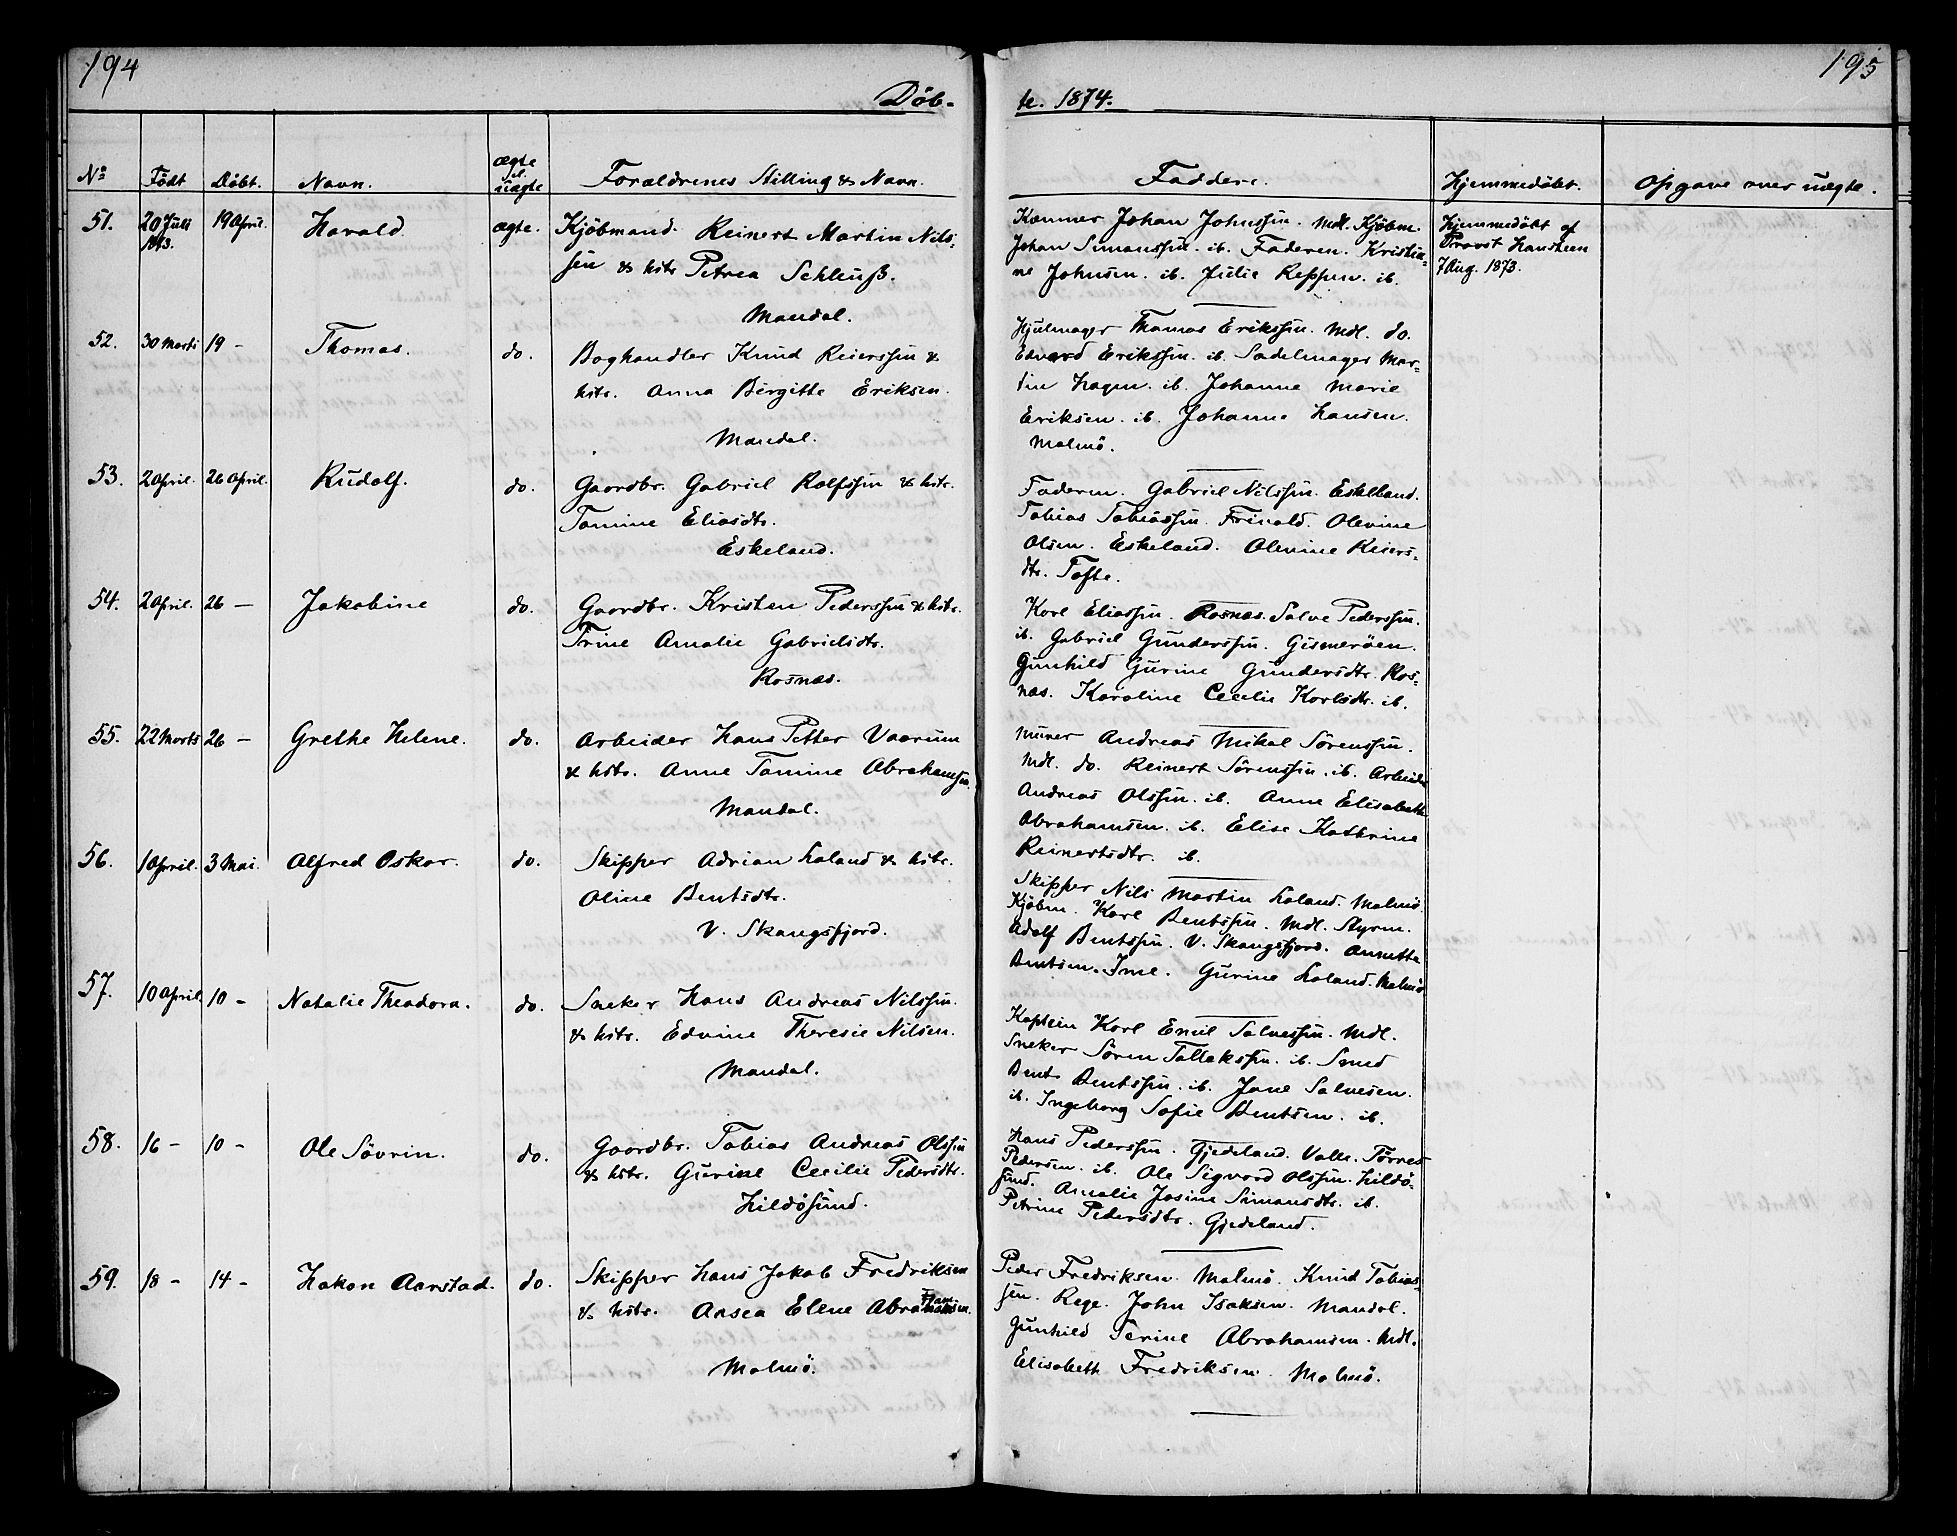 194
195
Döb-
te. 1874.
No Födt Döbt. Navn. ægte el. uægte Forældrenes Stilling & Navn. Faddere. Hjemmedöbt. Opgave over uægte.
51. 20 Juli 1873. 19 April. Harald. ægte. Kjöbmand. Reinert Martin Nils-
sen & hstr Petrea Schleuß.
Mandal.
Johan Johnssen. Mdl. Kjöbm.
Johan Simonssen. ib. Faderen. Kristia-
ne Johnsen. ib. Julie Reppen. ib.
Hjemmedöbt af
Provst Hansteen
7 Aug. 1873.
52. 30 Marts 19 - Thomas. do. Boghandler Knud Reierssen &
hstr. Anna Birgitte Eriksen.
Mandal.
Hjulmager Thomas Erikssen. Mdl. do.
Edvard Erikssen. ib. Sadelmager Mar-
tin Hagen. ib. Johanne Marie
Eriksen. ib. Johanne Hansen.
Malmö.
53. 2 April. 26 April. Rudolf. do. Gaardbr. Gabriel Rolfssen & hstr.
Tomine Eliasdtr.
Eskeland.
Faderen. Gabriel Nilssen. Eskeland.
Tobias Tobiassen. Frivold. Olevine
Olsen. Eskeland. Olevine Reiers-
dtr. Tofte.
54. 2 April. 26 - Jakobine do. Gaardbr. Kristen Pederssen & hstr.
Trine Amalie Gabrielsdtr.
Rosnæs.
Karl Eliassen. Rosnæs. Salve Pederssen.
ib. Gabriel Gunderssen. Gismeröen.
Gunhild Gurine Gundersdtr. Ros-
næs. Karoline Cecilie Karlsdtr. ib.
55. 22 Marts 26 - Grethe Helene. do. Arbeider Hans Petter Vaarum
& hstr. Anne Tomine Abrahamsen.
Mandal.
Murer Andreas Mikal Sörenssen.
Mdl. do. Reinert Sörenssen. ib. Arbeider
Andreas Olssen. ib. Anne Elisabeth
Abrahamsen. ib. Elise Kathrine
Reinertsdtr. ib.
56. 1 April. 3 Mai. Alfred Oskar. do. Skipper Adrian Laland & hstr.
Oline Bentsdtr.
V. Skangsfjord.
Skipper Nils Martin Laland. Malmö.
Kjöbm. Karl Bentssen. Mdl. Styrm.
Adolf Bentssen. V. Skangsfjord. Annette
Bentsen. Ime. Gurine Laland. Malmö
57. 10 April. 10 - Natalie Theodora. do. Sneker Hans Andreas Nilssen.
& hstr. Edvine Theresie Nilsen.
Mandal.
Kaptein Karl Emil Salvessen. Mdl.
Sneker Sören Tallakssen. ib. Smed
Bent Bentssen. ib. Jane Salvesen.
ib. Ingeborg Sofie Bentsen. ib.
58. 16 - 10 - Ole Sövrin. do. Gaardbr. Tobias Andreas Olssen
& hstr. Gurine Cecilie Pedersdtr.
Hildösund.
Hans Pederssen. Gjedeland. Valle. Törres
Pedersen. ib. Ole Sigvard Olssen. Hildö-
sund. Amalie Josine Simonsdtr. ib.
Petrine Pedersdtr. Gjedeland.
59. 18 - 14 - Hakon Aanstad. do. Skipper Hans Jakob Fredriksen
& hstr. Ansea Elene Abrahamsen.
Malmö.
Peder Fredriksen. Malmö. Knud Tobias-
sen. Rege. John Isaksen. Mandal.
Gunhild Serine Abrahamsen. Mdl.
Elisabeth Fredriksen. Malmö.